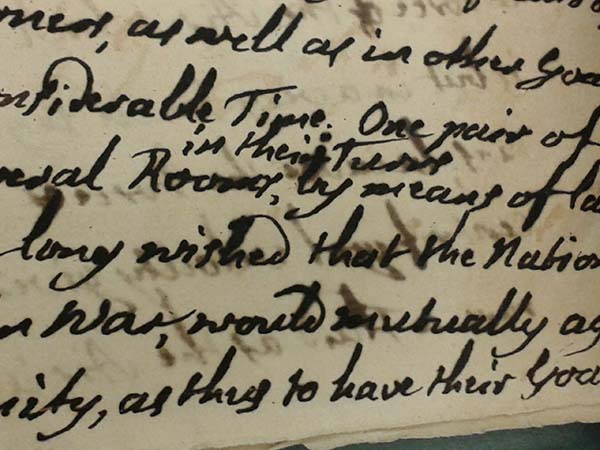 as well as in other Goa
nsiderable Time. One pair of
in their Turns
veral Rooms, by means of la
long wished that the Nation
n War, would mutually ag
nity, as thus to have their Goa